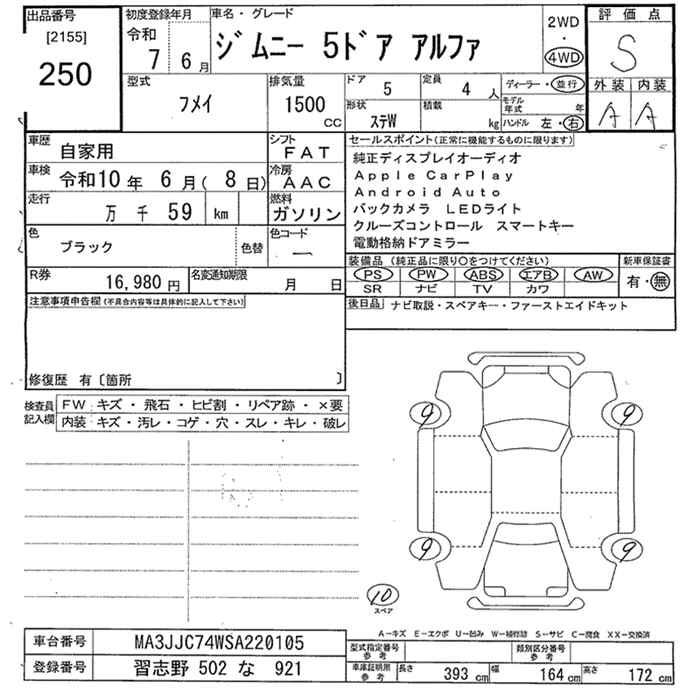 出品番号 初度登録年月 車名・グレード 評価点
[2155] 令和 ジムニー 5ドア アルファ 2WD S
250 7 6月 4WD
型式 排気量 ドア 5 定員 4 人 ディーラー・並行 外装 内装
フメイ 1500 cc 形状 ステW 積載 kg モデル年式 年 A A
ハンドル 左・右
車歴 自家用 シフト FAT セールスポイント(正常に機能するものに限ります)
車検 令和10 年 6 月( 8 日) 冷房 AAC 純正ディスプレイオーディオ
Apple CarPlay
走行 万 千 59 km 燃料 ガソリン Android Auto
バックカメラ LEDライト
色 ブラック 色替 色コード ー クルーズコントロール スマートキー
電動格納ドアミラー
R券 16,980 円 名変通知期限 月 日 装備品(純正品に限り〇をつけてください) 新車保証書
PS PW ABS エアB AW 有・無
SR ナビ TV カワ
注意事項申告欄(不具合内容等は具体的に記入して下さい) 後日品 ナビ取説・スペアキー・ファーストエイドキット
修復歴 有〔箇所 〕
検査員記入欄 FW キズ・飛石・ヒビ割・リペア跡・×要
内装 キズ・汚レ・コゲ・穴・スレ・キレ・破レ
9 9
9 9
10
スペア
A-キズ E-エクボ U-凹み W-補修跡 S-サビ C-腐食 XX-交換済
車台番号 MA3JJC74WSA220105 型式指定番号 参考 類別区分番号 参考
登録番号 習志野 502 な 921 車庫証明用 参考 長さ 393 cm 幅 164 cm 高さ 172 cm